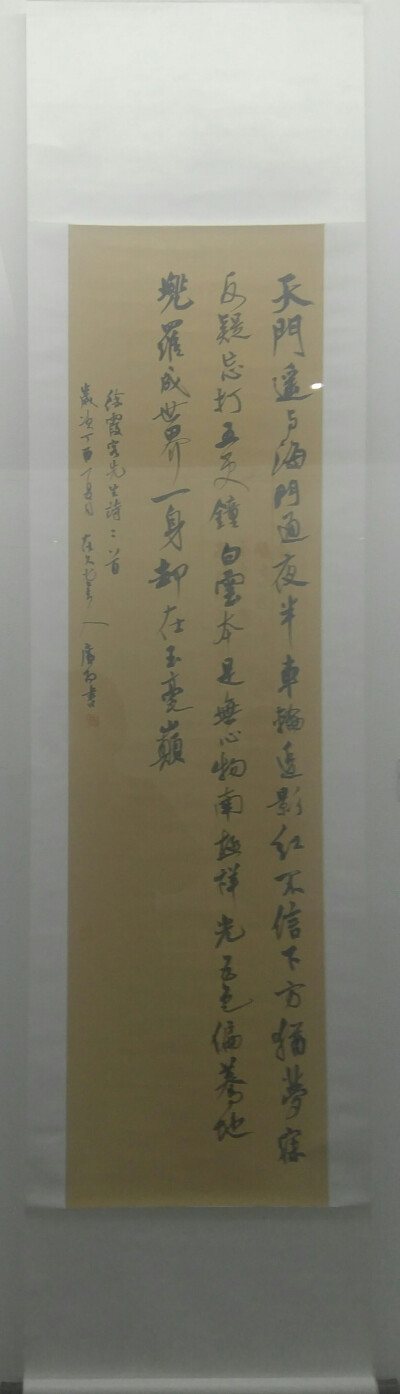 天門遥与海門通夜半車輪透影紅不信下方猶夢寐
反疑忘打五更鐘白雲本是無心物南極祥光五色偏驀地
兜羅成世界一身却在玉毫巔
徐霞客先生詩二首
歲次丁酉